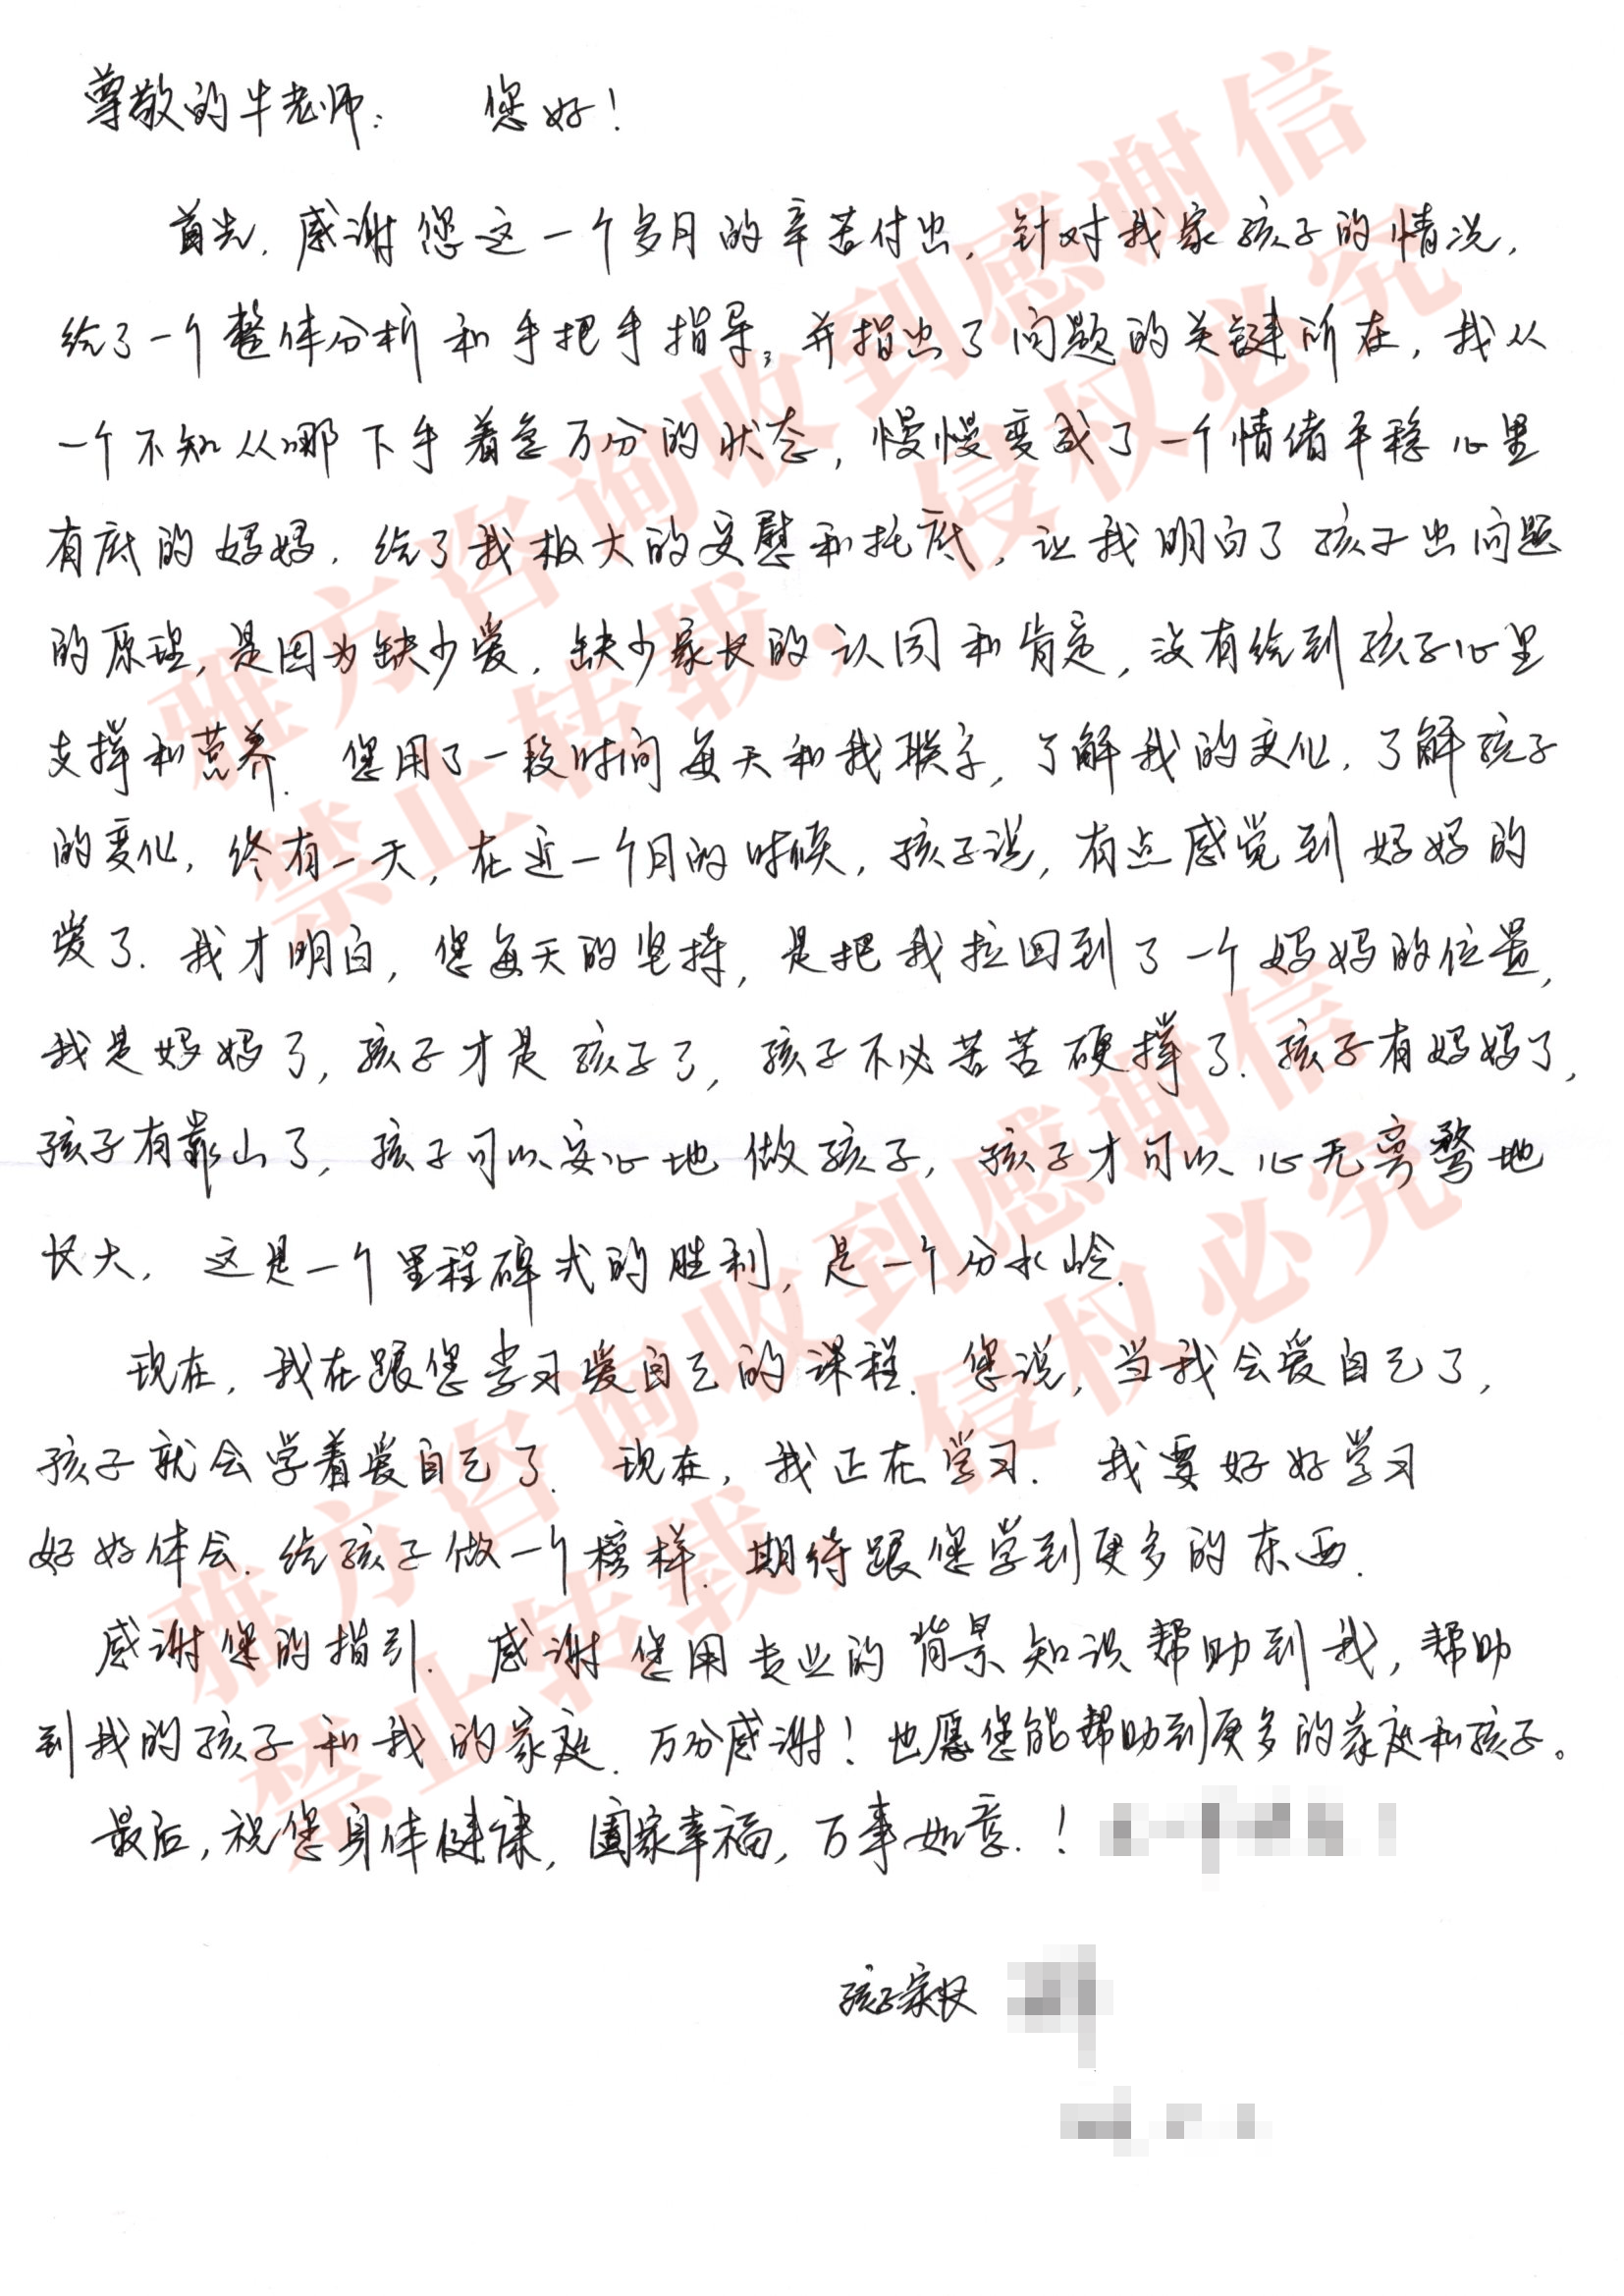 尊敬的牛老师： 您好！
首先，感谢您这一个多月的辛苦付出，针对我家孩子的情况，
给了一个整体分析和手把手指导，并指出了问题的关键所在，我从
一个不知从哪下手着急万分的状态，慢慢变成了一个情绪平稳心里
有底的妈妈．给了我极大的安慰和托底，让我明白了孩子出问题
的原理，是因为缺少爱，缺少家长的认同和肯定，没有给到孩子心里
支撑和营养．您用了一段时间每天和我联系，了解我的变化，了解孩子
的变化，终有一天，在近一个月的时候，孩子说，有点感觉到妈妈的
爱了．我才明白，您每天的坚持，是把我拉回到了一个妈妈的位置，
我是妈妈了，孩子才是孩子了，孩子不必苦苦硬撑了．孩子有妈妈了，
孩子有靠山了，孩子可以安心地做孩子，孩子才可以心无旁骛地
长大，这是一个里程碑式的胜利，是一个分水岭．
现在，我在跟您学习爱自己的课程．您说，当我会爱自己了，
孩子就会学着爱自己了．现在，我正在学习．我要好好学习
好好体会．给孩子做一个榜样．期待跟您学到更多的东西．
感谢您的指引．感谢您用专业的背景知识帮助到我，帮助
到我的孩子和我的家庭．万分感谢！也愿您能帮助到更多的家庭和孩子。
最后，祝您身体健康，阖家幸福，万事如意．！
孩子家长
雅方咨询收到感谢信
禁止转载，侵权必究
雅方咨询收到感谢信
禁止转载，侵权必究